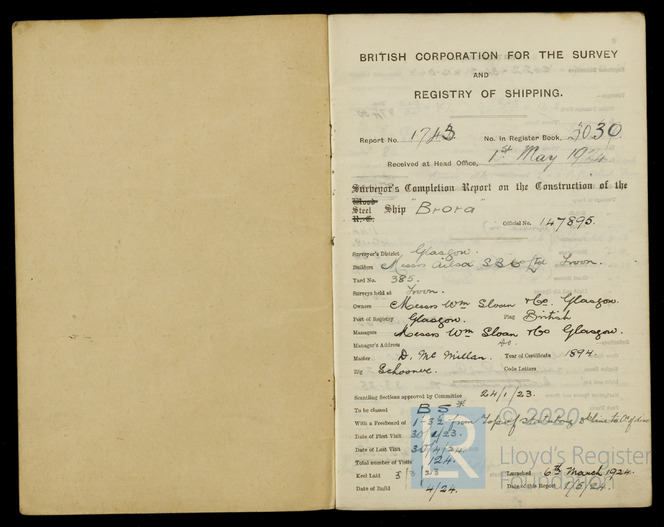 BRITISH CORPORATION FOR THE SURVEY
AND
REGISTRY OF SHIPPING.
Report No. 1743. No. in Register Book, 3030
Received at Head Office, 1st May 1924
Surveyor's Completion Report on the Construction of the
Wood
Steel Ship "Brora"
Official No. 147895.
Surveyor's District Glasgow.
Builders Messrs Ailsa S B Co Ltd Troon.
Yard No. 385.
Surveys held at Troon.
Owners Messrs Wm Sloan & Co. Glasgow.
Port of Registry Glasgow. Flag British
Managers Messrs Wm Sloan & Co Glasgow.
Manager's Address do.
Master D. Mc Millan. Year of Certificate 1894.
Rig Schooner. Code Letters
Scantling Sections approved by Committee 24/1/23.
To be classed B S *
With a Freeboard of 1-3½ from Top of
Date of First Visit 30/ /23.
Date of Last Visit 30/4/24.
Total number of Visits 124.
Keel Laid 3/ /23 Launched 6th March 1924.
Date of Build 4/24. Date of this Report 1/5/24
© 2020
LR
Lloyd's Register
Foundation